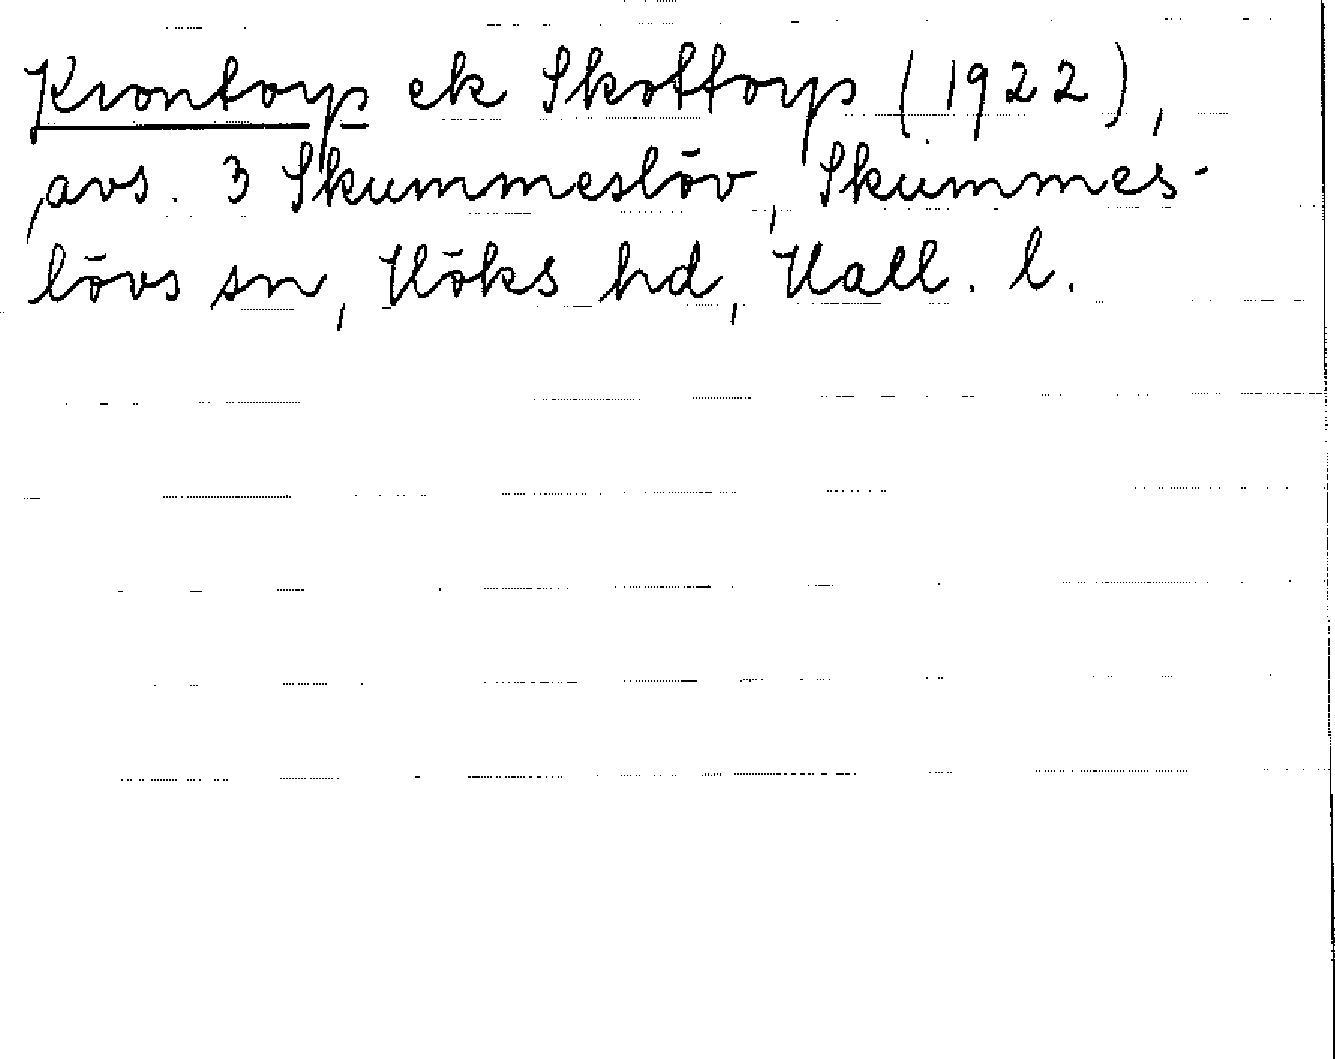 Krontorp ek Skottorp (1922),
avs. 3 Skummeslöv, Skummes-
lövs sn, Höks hd, Hall. l.